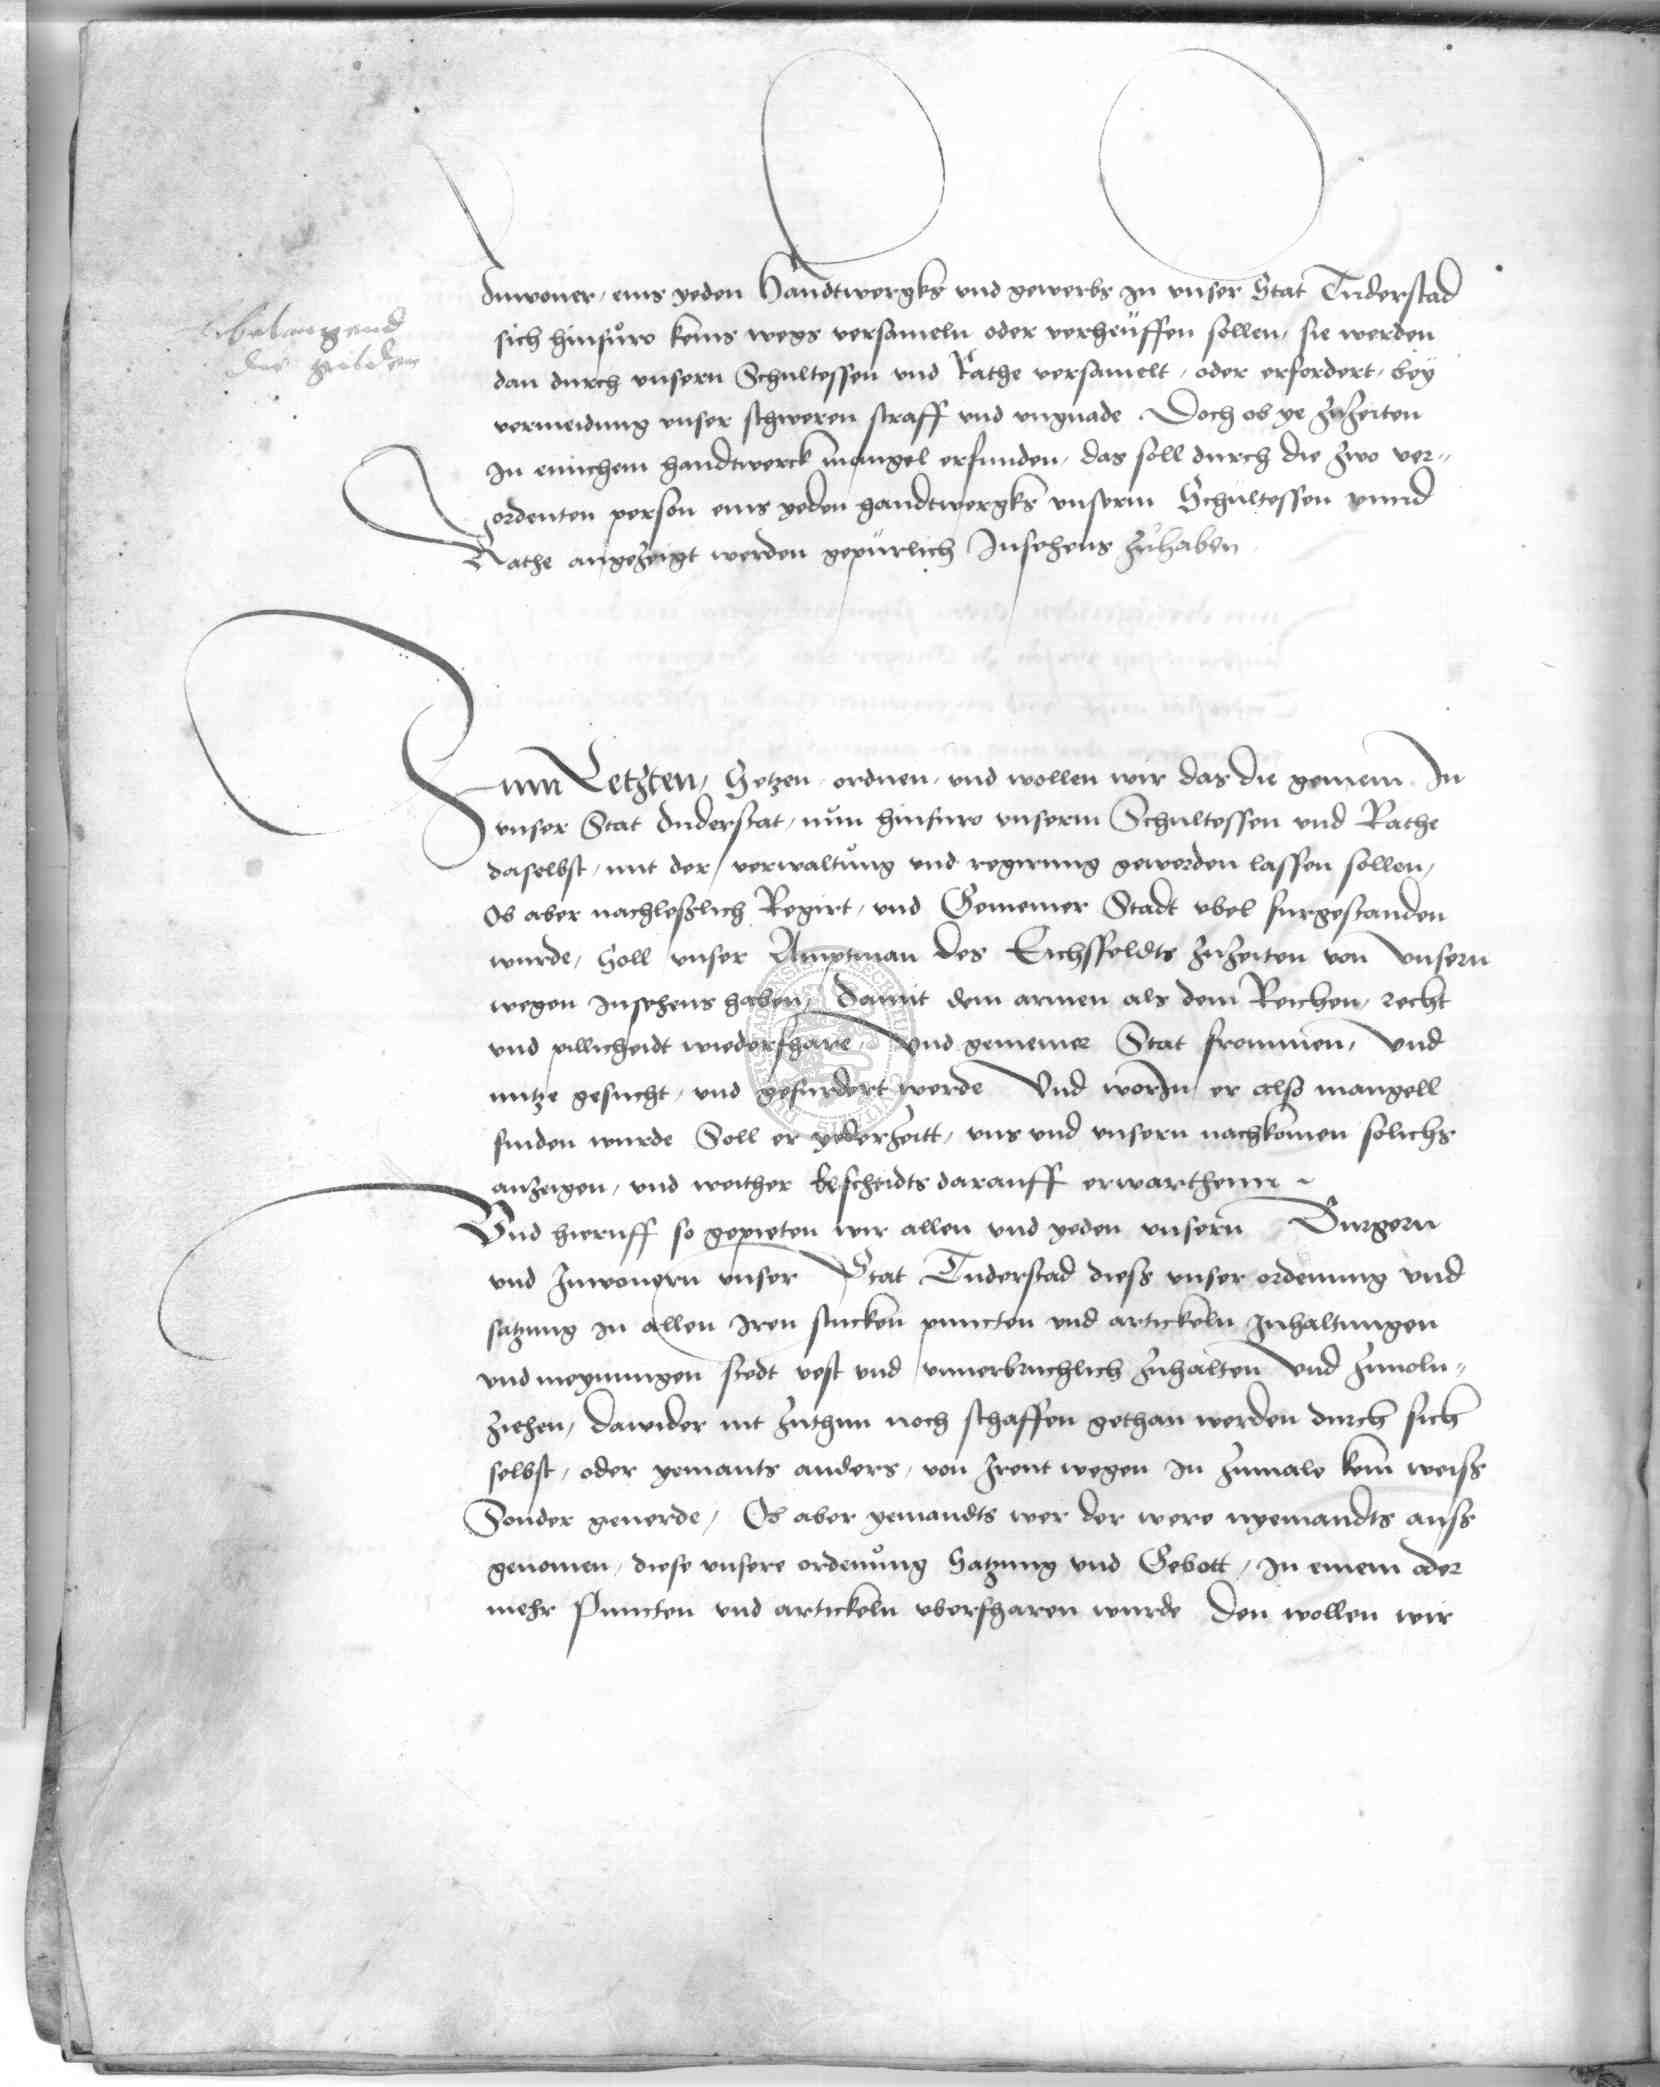 belangend
die gulden
Inwoner, eins yeden Handtwergks und gewerbs in unser Stat Duderstad
sich hinfuro keins wegs versameln oder verheuffen sollen, sie werden
dan durch unsern Schultessen und Rathe versamelt, oder erfordert, bey
vermeidung unser schweren straff und ungnade Doch ob ye zuzeiten
in einichem handtwerck mangel erfunden, das soll durch die zwo ver=
ordenten person eins yeden handtwergks unserm Schultessen unnd
Rathe angezeigt werden gepurlich Insehens zuhaben
Zum Letzten, Setzen, ordnen, und wollen wir das die gemein In
unser Stat Duderstat, nun hinfuro unserm Schultessen und Rathe
daselbst, mit der verwaltung und regirung gewerden lassen sollen,
Ob aber nachleßlich Regirt, und Gemeiner Stadt ubel furgestanden
wurde, Soll unser Amptman des Eichsfeldts zuzeiten von unsern
wegen insehens haben, damit dem armen als dem Reichen, recht
und pillicheidt wiederfhare, Und gemeiner Stat frommen, und
nutze gesucht, und gefurdert werde Und worin er also mangell
finden wurde Soll er yederzeitt, uns und unsern nachkomen solichs
anzeigen, und weither bescheidts darauff erwarthenn
Und hieruff so gepieten wir allen und yeden unsern Burgern
und Inwonern unser Stat Duderstad dieß unser ordenung und
satzung in allen iren stucken puncten und artickeln Inhaltungen
und meynungen stedt vest und unnerbruchlich zuhalten Und zuuoln=
ziehen, dawider nit zuthun noch schaffen gethan werden durch sich
selbst, oder yemants anders, von irent wegen in zumale kein weiß
Sonder geuerde, Ob aber yemandts wer der were nyemandts auß
genomen, diese unsere ordenung Satzung und Gebott, in einem oder
mehr Puncten und artickeln uberfharen wurde den wollen wir